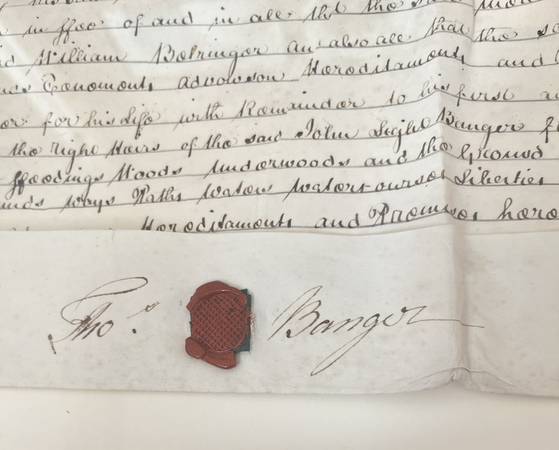 in ffee of and in all that the said
William Bolringer an also all that the
Tenements advowson Hereditaments and
for his Life with Remainder to his first
the right Heirs of the said John Light Banger
ffeedings Woods Underwoods and the Ground
ways Paths waters watercourses Liberties
Hereditaments and Premises
Tho.s Banger